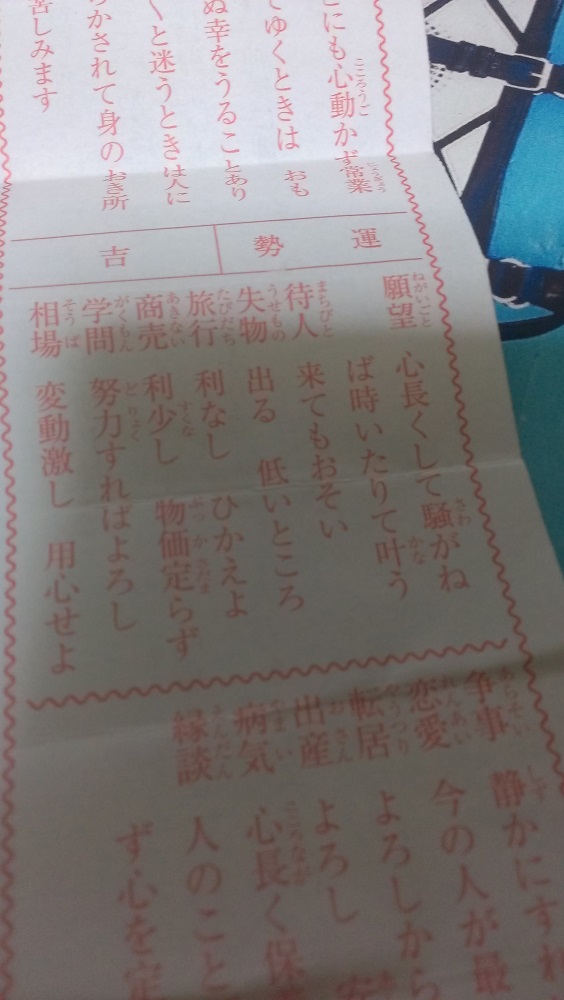 にも心動かず常業
てゆくときは おも
ぬ幸をうることあり
くと迷うときは人に
かされて身のおき所
苦しみます
運勢 吉
願望 心長くして騒がね
ば時いたりて叶う
待人 来てもおそい
失物 出る 低いところ
旅行 利なし ひかえよ
商売 利少し 物価定らず
学問 努力すればよろし
相場 変動激し 用心せよ
争事 静かにすれ
恋愛 今の人が最
転居 よろしから
出産 よろし 安
病気 心長く保
縁談 人のこと
ず心を定